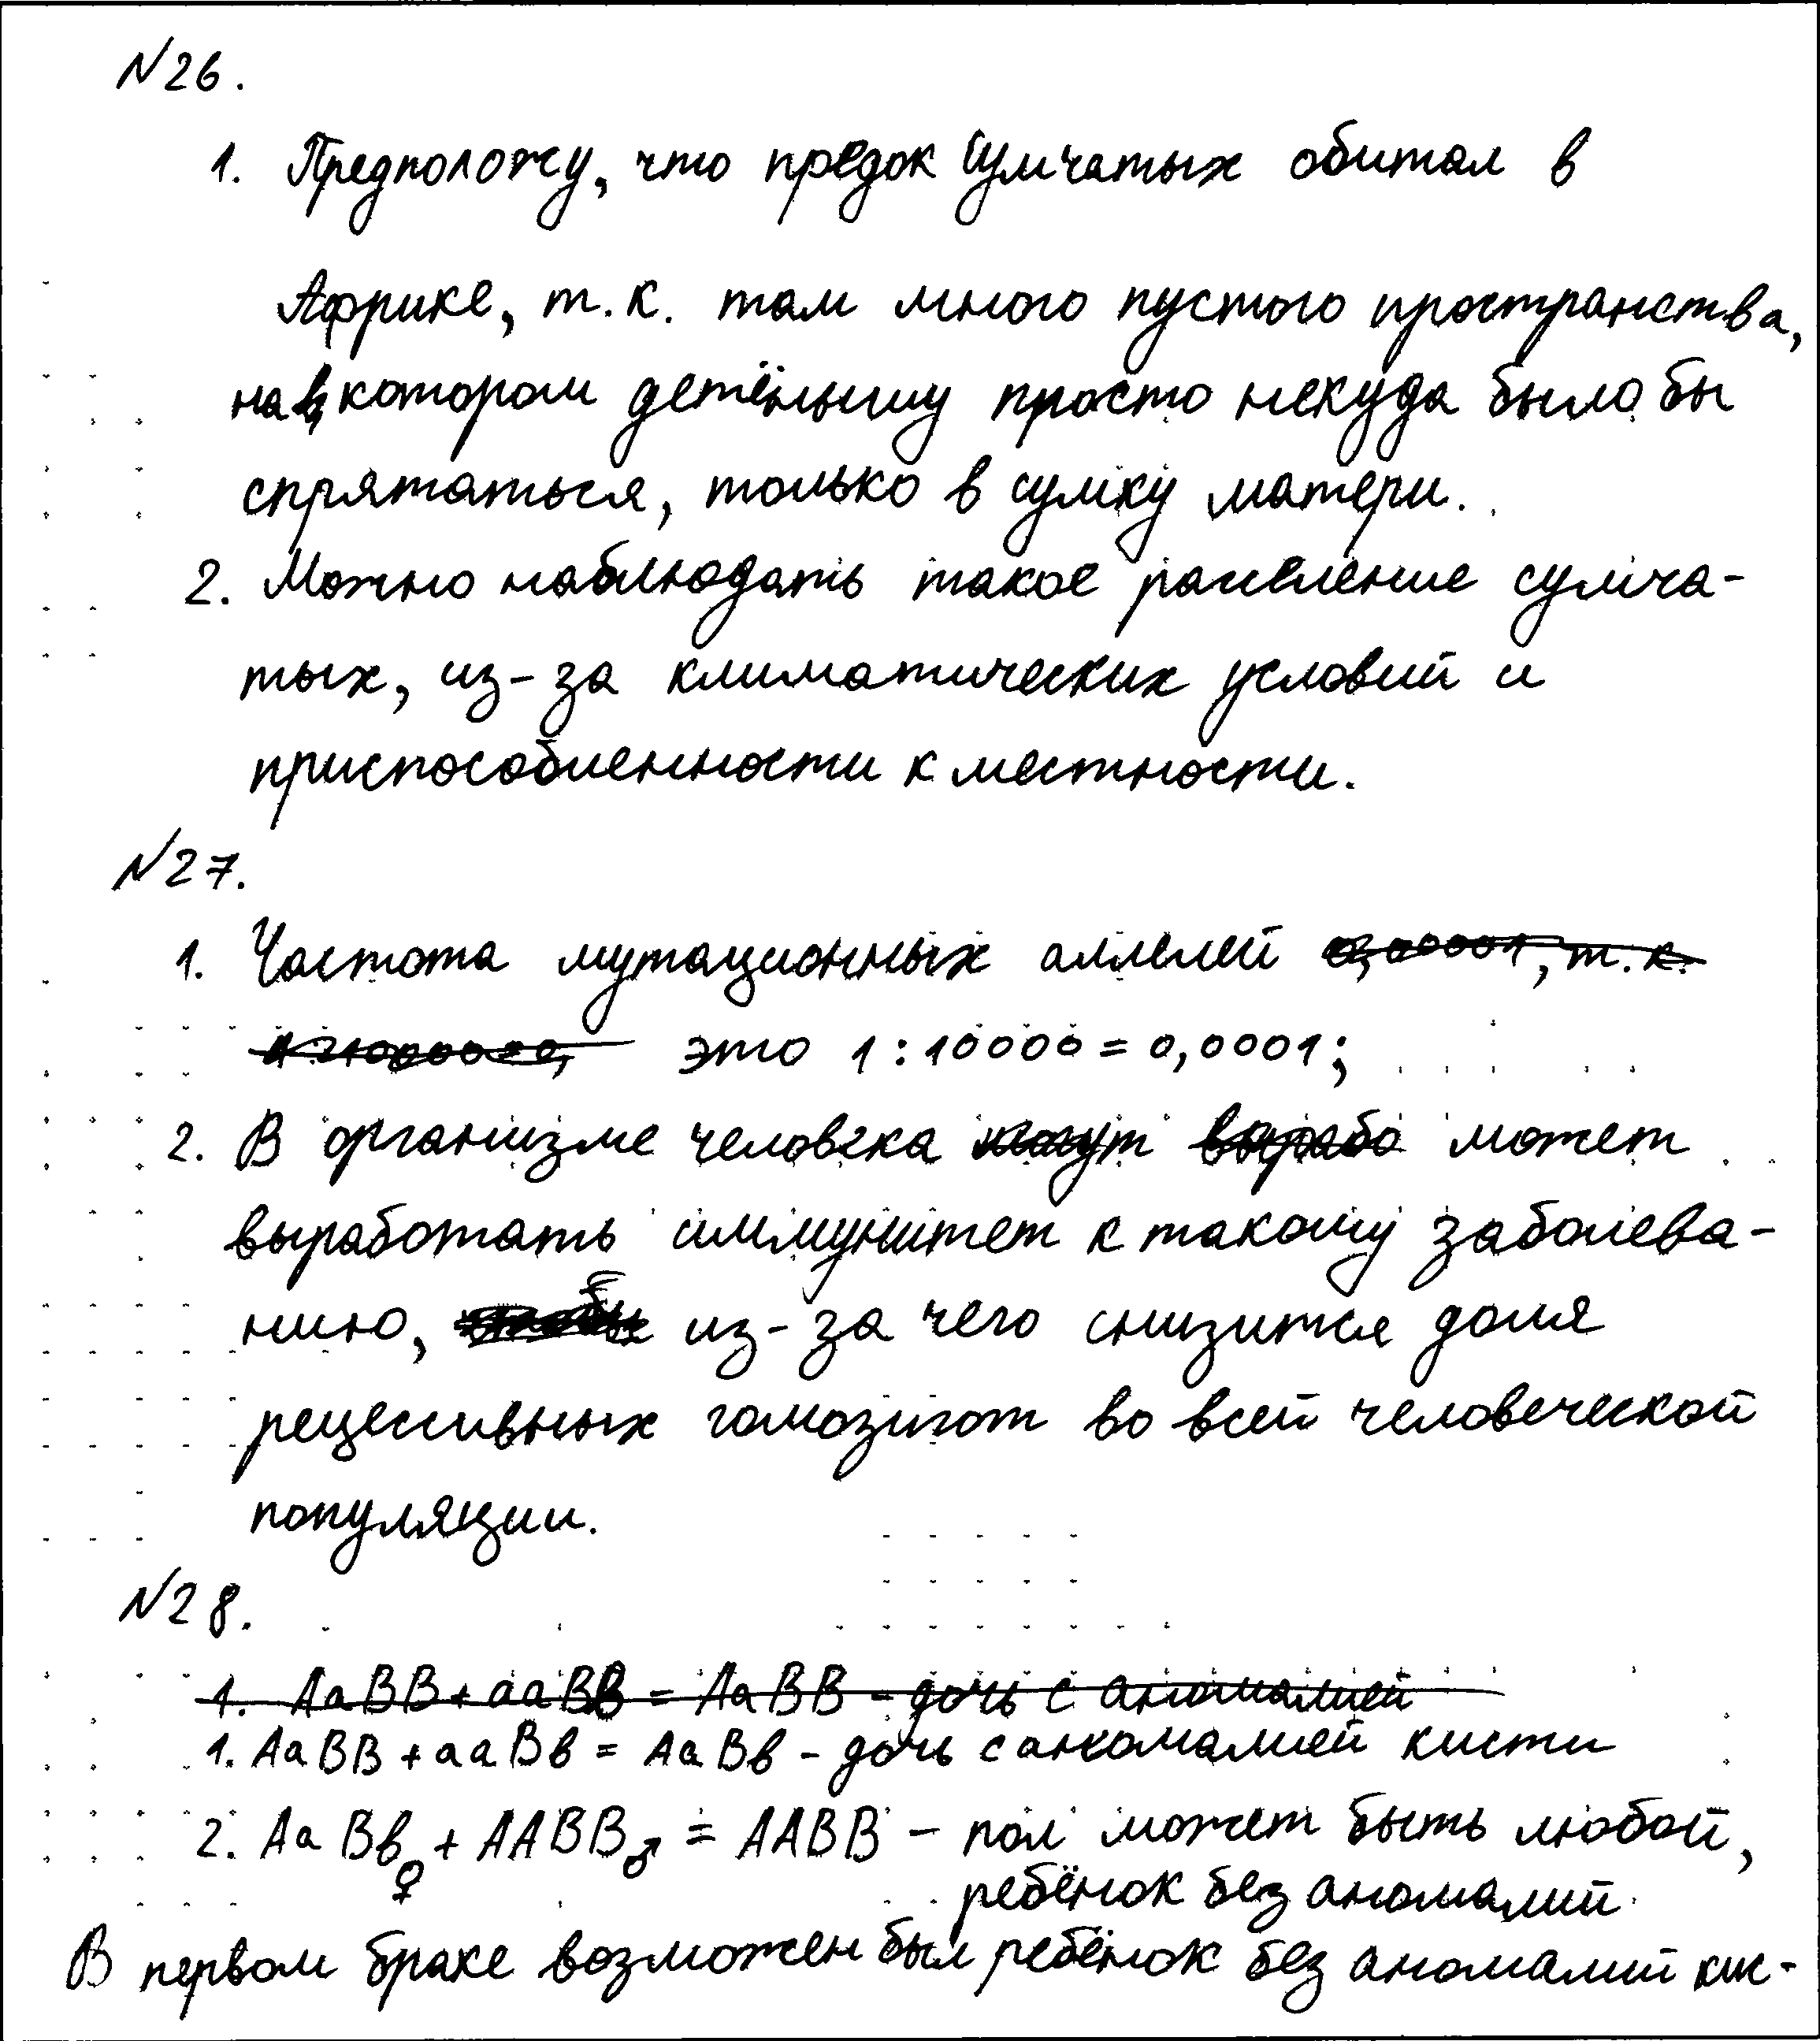 №26.
1. Предположу, что предок сумчатых обитал в
Африке, т.к. там много пустого пространства,
на котором детёнышу просто некуда было бы
спрятаться, только в сумку матери.
2. Можно наблюдать такое расселение сумча-
тых, из-за климатических условий и
приспособленности к местности.
№27.
1. Частота мутационных аллелей 0,00001, т.к.
это 1:10000=0,0001;
2. В организме человека могут вырабо может
выработать иммунитет к такому заболева-
нию, из-за чего снизится доля
рецессивных гомозигот во всей человеческой
популяции.
№28.
1. AaBB+aaBB = AaBB - дочь с аномалией
1. AaBB + aaBb = AaBb - дочь с аномалией кисти
2. AaBb♀ + AABB♂ = AABB - пол может быть любой,
ребёнок без аномалий
В первом браке возможен был ребёнок без аномалий кис-